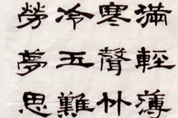 滿輕薄
寒聲竹
冷五難
勞夢思